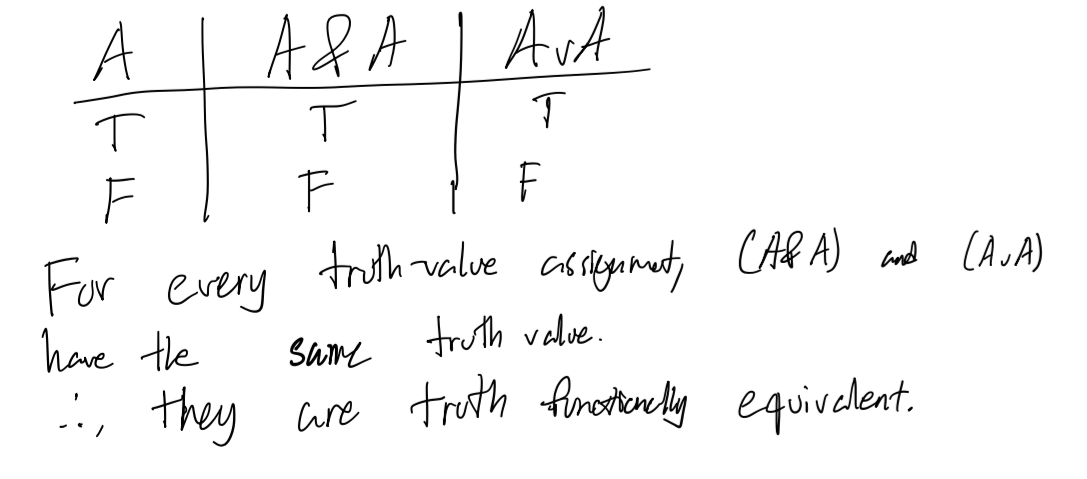 A | A & A | A ∨ A
T | T | T
F | F | F
For every truth-value assignment, (A & A) and (A ∨ A)
have the same truth value.
∴, they are truth functionally equivalent.